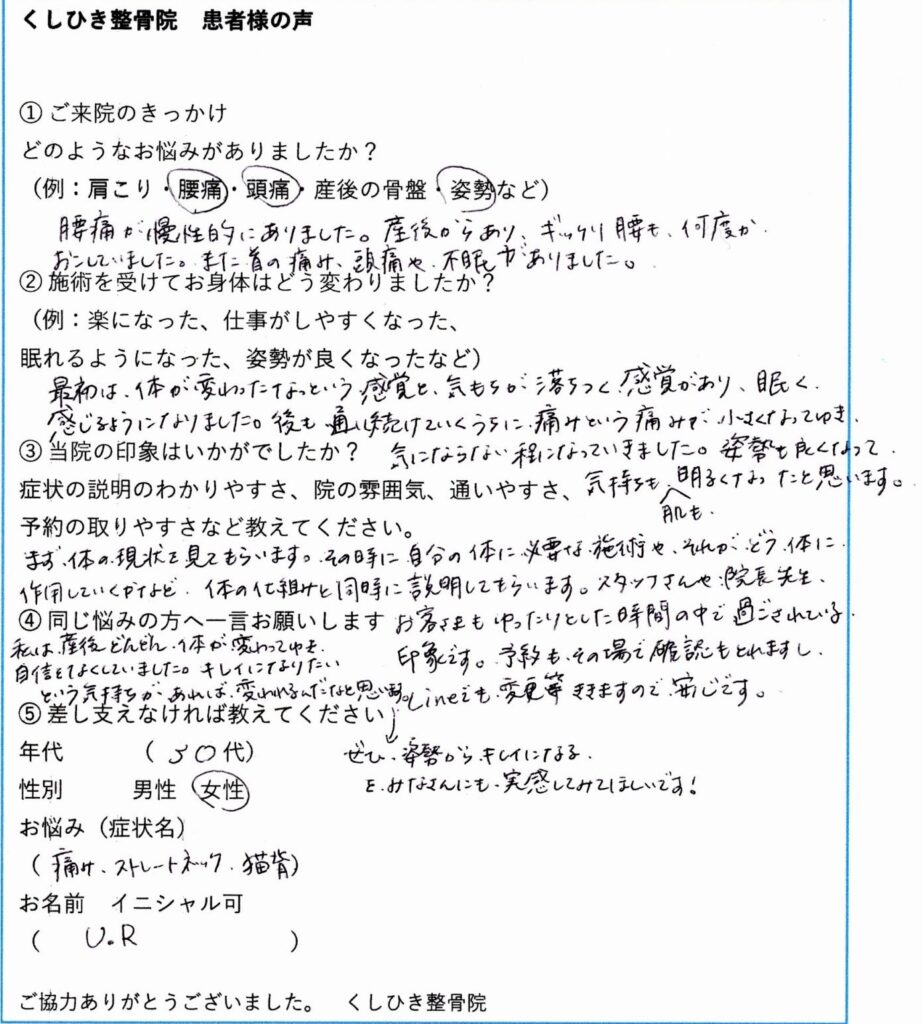 くしひき整骨院 患者様の声
① ご来院のきっかけ
どのようなお悩みがありましたか？
（例：肩こり・腰痛・頭痛・産後の骨盤・姿勢など）
腰痛が慢性的にありました。産後からあり、ギックリ腰も、何度か
おこしていました。また首の痛み、頭痛や、不眠がありました。
② 施術を受けてお身体はどう変わりましたか？
（例：楽になった、仕事がしやすくなった、
眠れるようになった、姿勢が良くなったなど）
最初は、体が変わったなっという感覚と、気もちが落ちつく感覚があり、眠く
感じるようになりました。後も通い続けていくうちに、痛みという痛みが、小さくなってゆき、
気にならない程になっていきました。姿勢も良くなって
気持ちも、肌も、明るくなったと思います。
③ 当院の印象はいかがでしたか？
症状の説明のわかりやすさ、院の雰囲気、通いやすさ、
予約の取りやすさなど教えてください。
まず、体の現状を見てもらいます。その時に自分の体に必要な施術や、それがどう体に
作用していくかなど、体の仕組みと同時に説明してもらいます。スタッフさんや院長先生、
お客さまもゆったりとした時間の中で過ごされている
印象です。予約も、その場で確認もとれますし、
Lineでも、変更等できますので、安心です。
④ 同じ悩みの方へ一言お願いします
私は、産後どんどん、体が変わってゆき、
自信をなくしていました。キレイになりたい
という気持ちが、あれば、変われるんだなと思います。
ぜひ、姿勢からキレイになる
を、みなさんにも、実感してみてほしいです！
⑤ 差し支えなければ教えてください
年代 （30代）
性別 男性 女性
お悩み（症状名）
（痛み、ストレートネック、猫背）
お名前 イニシャル可
（ U.R ）
ご協力ありがとうございました。 くしひき整骨院